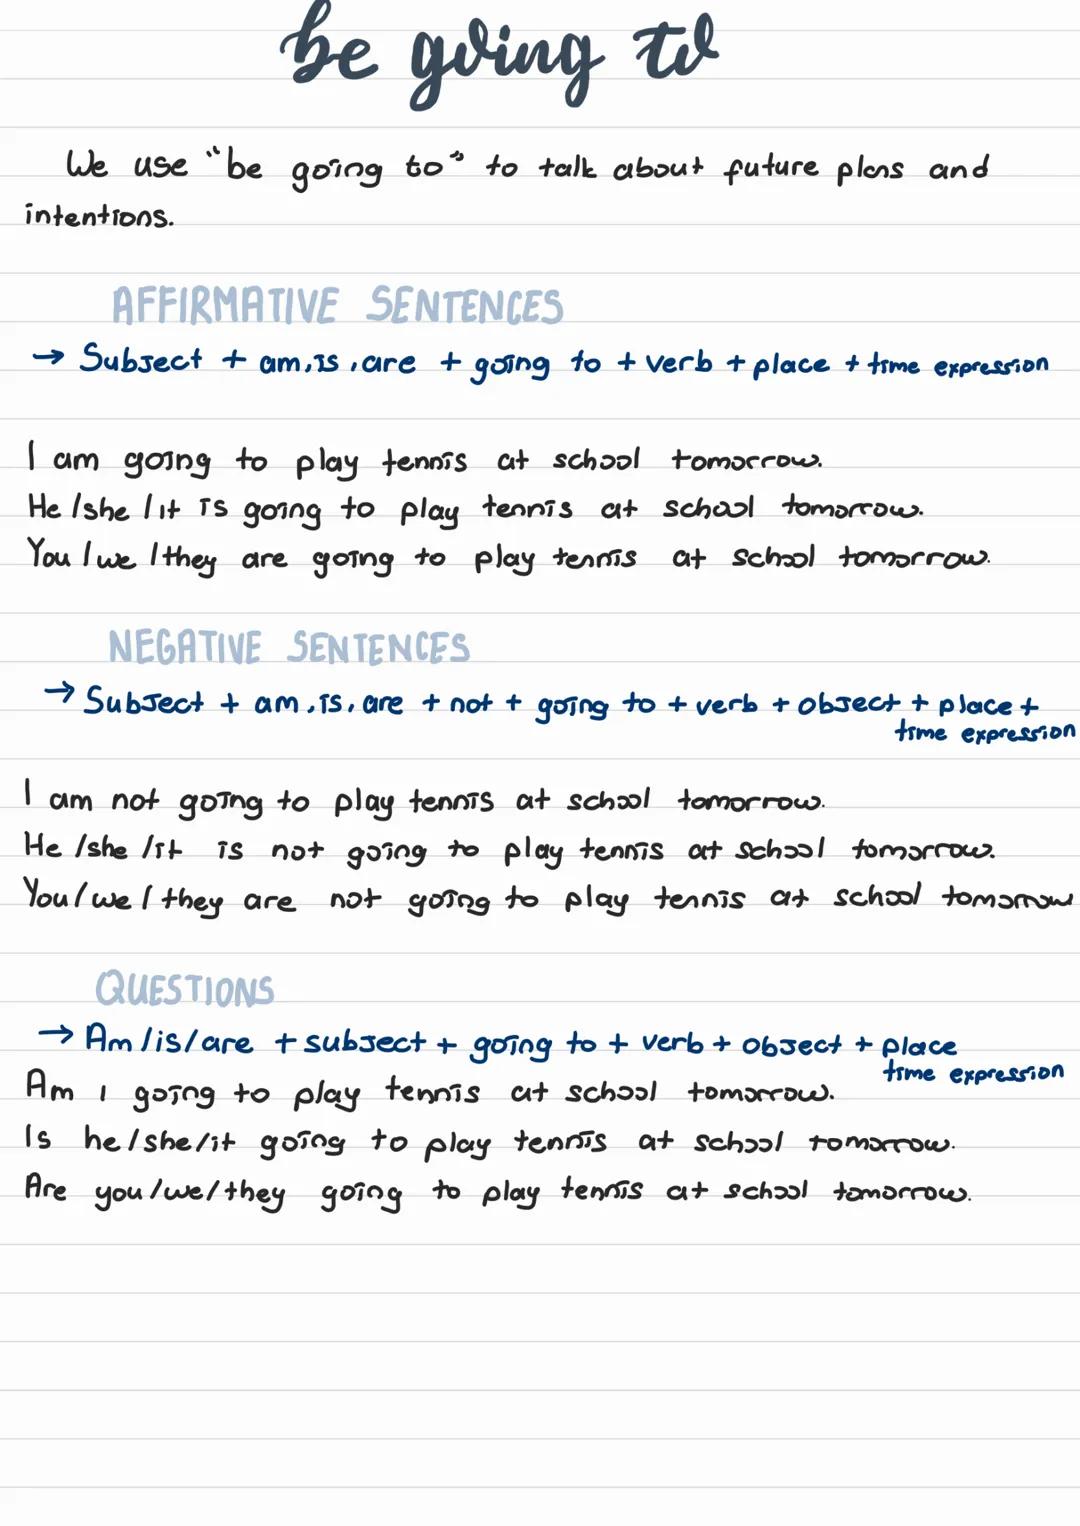 be going to
We use "be going to" to talk about future plans and
intentions.
AFFIRMATIVE SENTENCES
→ Subject + am, is, are + going to + verb + place + time expression
I am going to play tennis at school tomorrow.
He /she /it is going to play tennis at school tomorrow.
You /we /they are going to play tennis at school tomorrow.
NEGATIVE SENTENCES
→ Subject + am, is, are + not + going to + verb + object + place +
time expression
I am not going to play tennis at school tomorrow.
He /she /it is not going to play tennis at school tomorrow.
You/we/they are not going to play tennis at school tomorrow
QUESTIONS
→ Am/is/are + subject + going to + verb + object + place
time expression
Am I going to play tennis at school tomorrow.
Is he/she/it going to play tennis at school tomorrow.
Are you/we/they going to play tennis at school tomorrow.